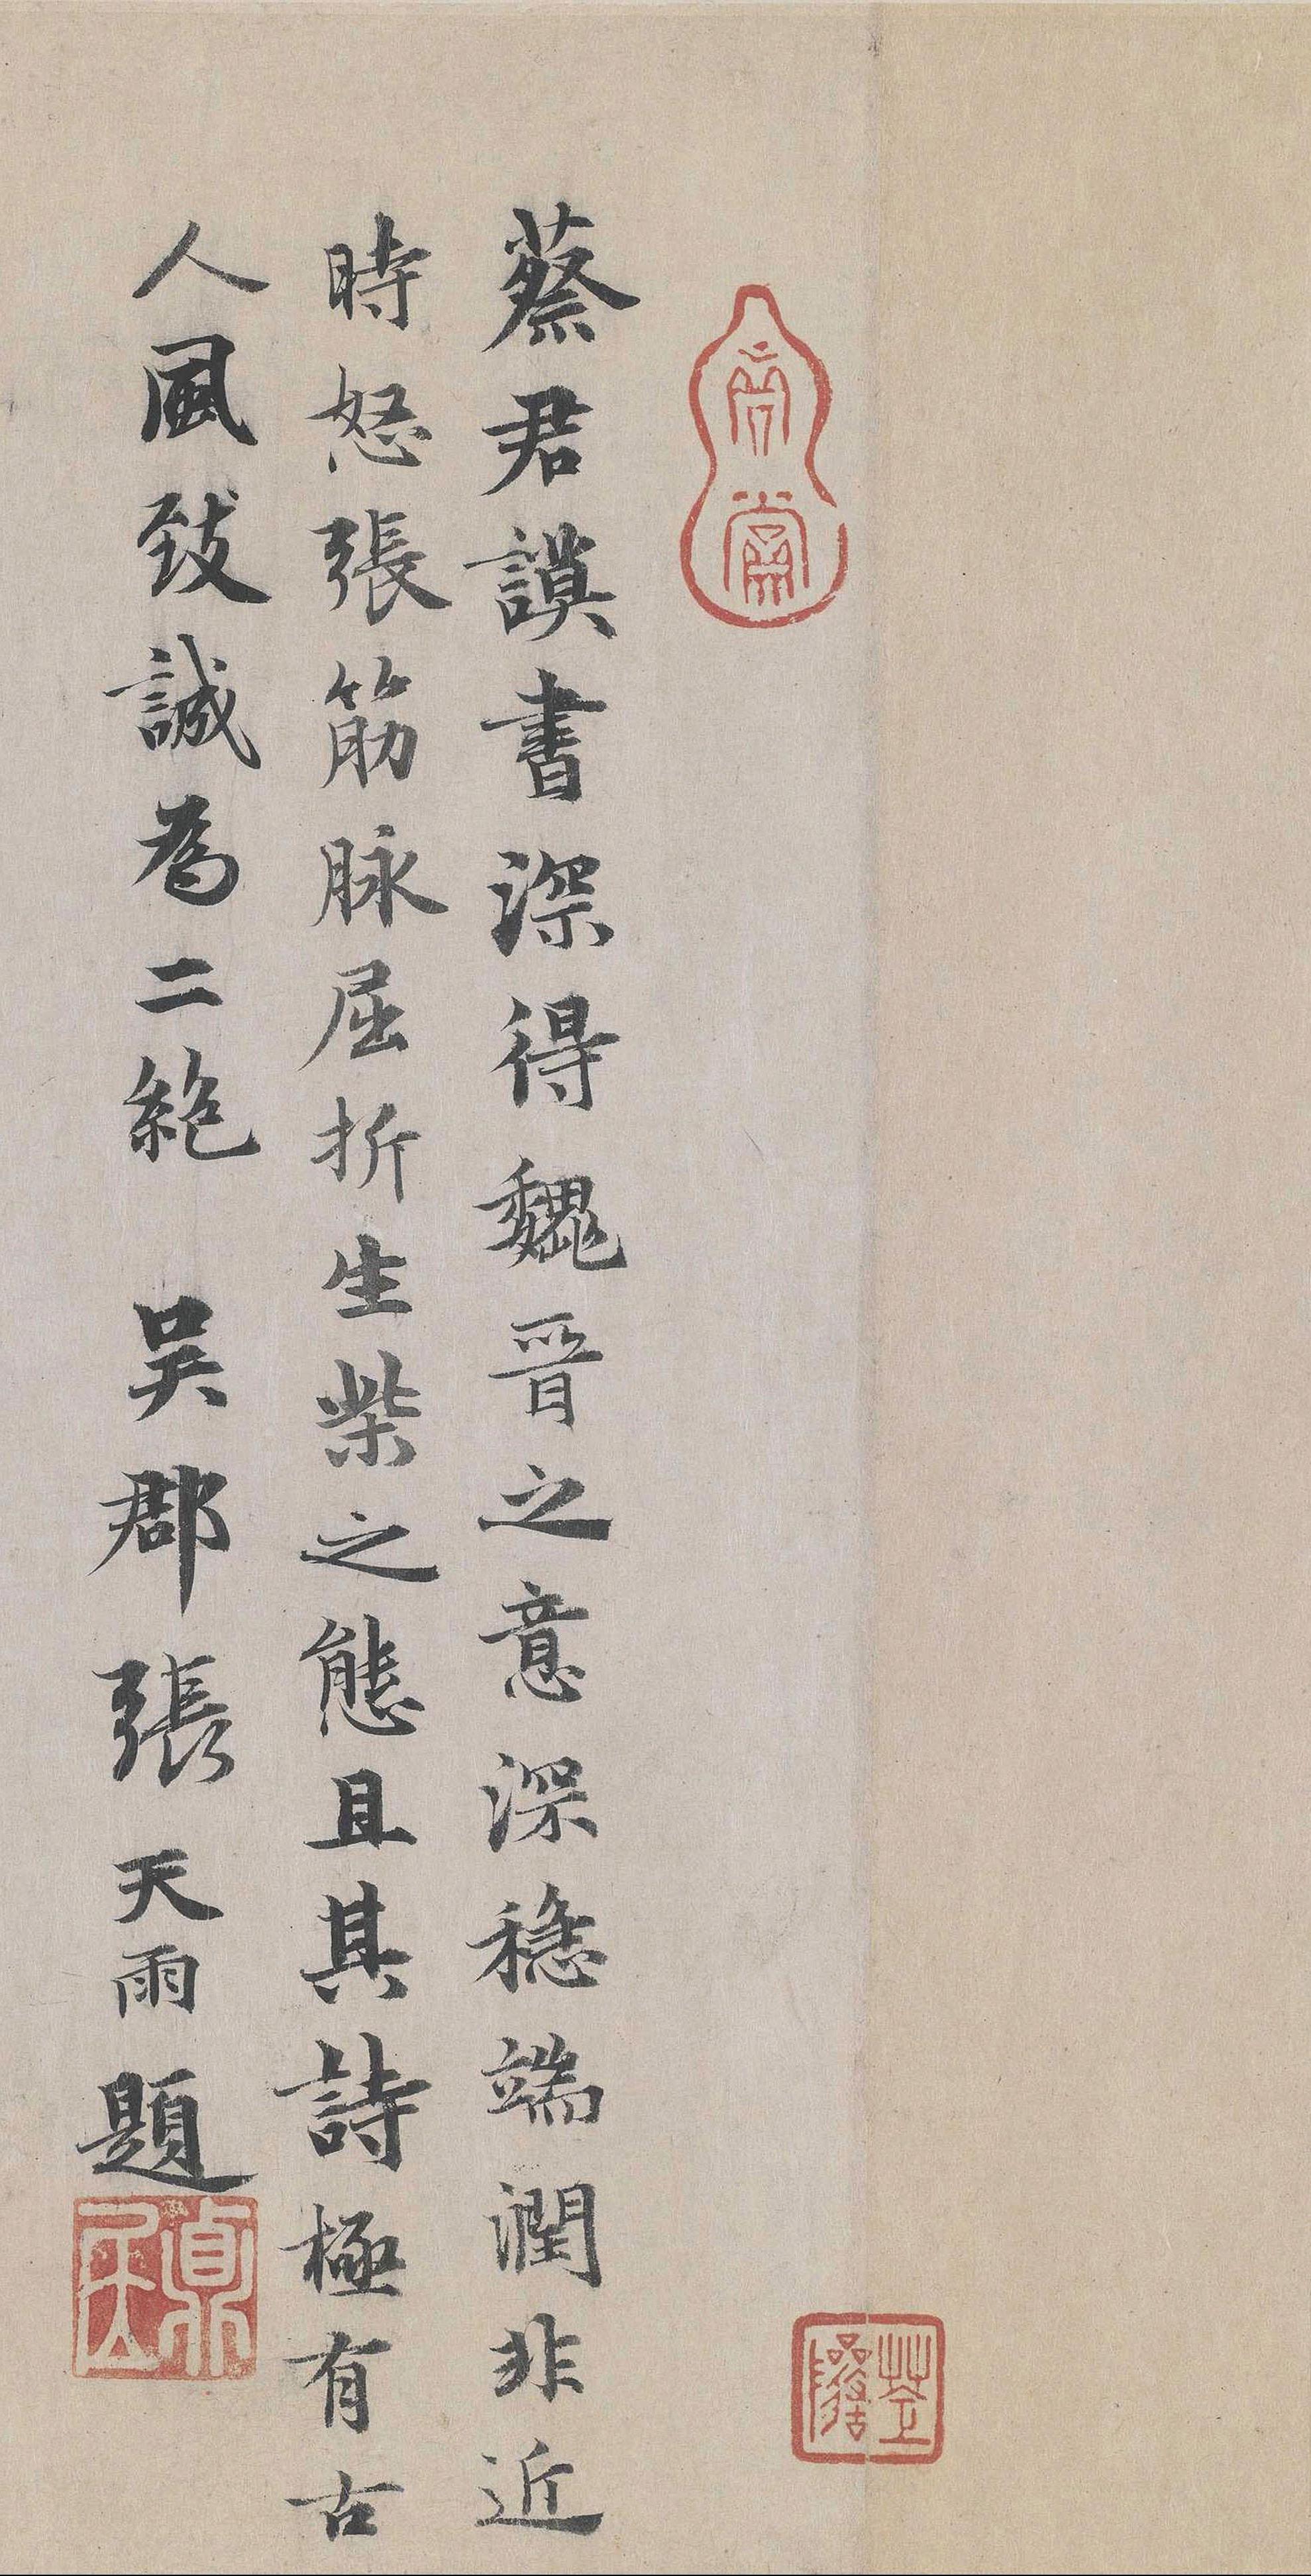 蔡君謨書深得魏晉之意深穩端潤非近
時怒張筋脉屈折生柴之態且其詩極有古
人風致誠為二絶 吴郡張天雨題